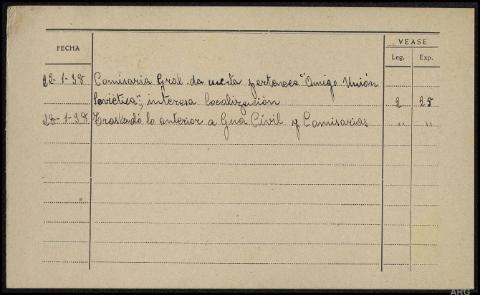 FECHA
VEASE
Leg. Exp.
22-1-38 Comisaria Gral. da cuenta pertenece "Amigo Unión
Sovietica", interesa localización 2 25
28-1-38 Traslado lo anterior a Gua Civil y Comisarias " "
ARG